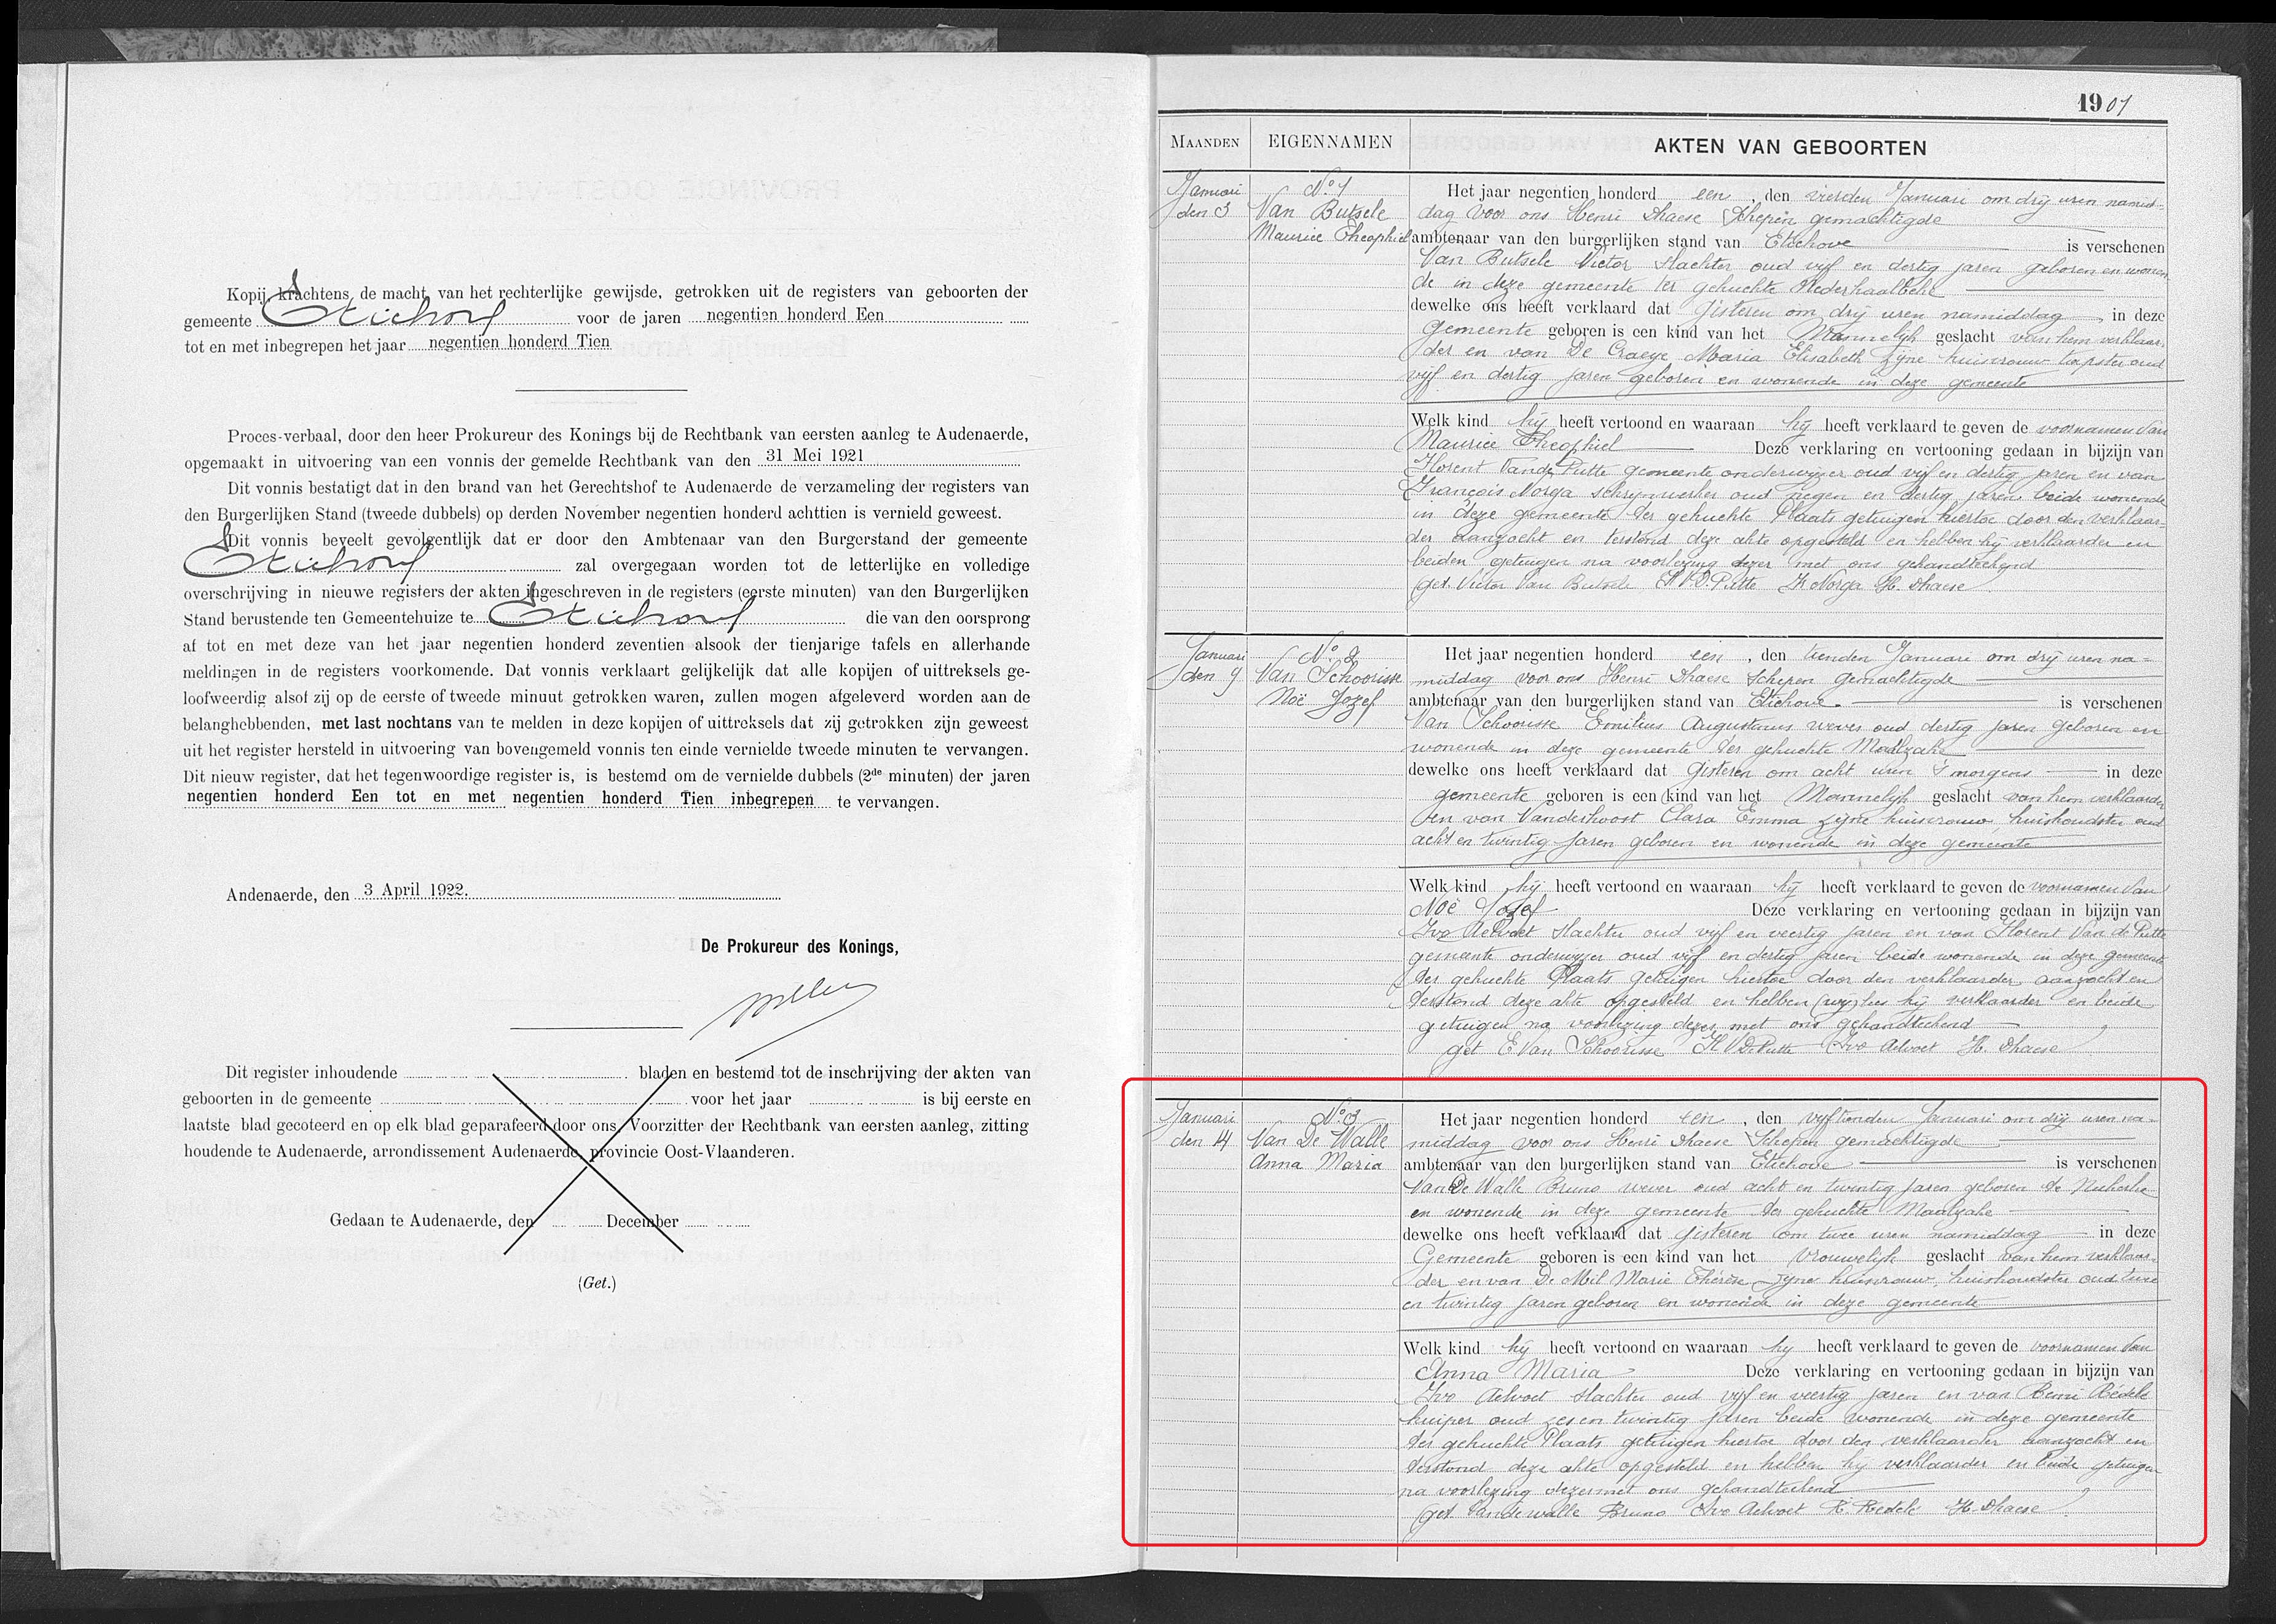 Kopij, krachtens de macht van het rechterlijke gewijsde, getrokken uit de registers van geboorten der
gemeente Etichove voor de jaren negentien honderd Een
tot en met inbegrepen het jaar negentien honderd Tien
Proces-verbaal, door den heer Prokureur des Konings bij de Rechtbank van eersten aanleg te Audenaerde,
opgemaakt in uitvoering van een vonnis der gemelde Rechtbank van den 31 Mei 1921
Dit vonnis bestatigt dat in den brand van het Gerechtshof te Audenaerde de verzameling der registers van
den Burgerlijken Stand (tweede dubbels) op derden November negentien honderd achttien is vernield geweest.
Dit vonnis beveelt gevolgentlijk dat er door den Ambtenaar van den Burgerstand der gemeente
Etichove zal overgegaan worden tot de letterlijke en volledige
overschrijving in nieuwe registers der akten ingeschreven in de registers (eerste minuten) van den Burgerlijken
Stand berustende ten Gemeentehuize te Etichove die van den oorsprong
af tot en met deze van het jaar negentien honderd zeventien alsook der tienjarige tafels en allerhande
meldingen in de registers voorkomende. Dat vonnis verklaart gelijkelijk dat alle kopijen of uittreksels ge-
loofweerdig alsof zij op de eerste of tweede minuut getrokken waren, zullen mogen afgeleverd worden aan de
belanghebbenden, met last nochtans van te melden in deze kopijen of uittreksels dat zij getrokken zijn geweest
uit het register hersteld in uitvoering van bovengemeld vonnis ten einde vernielde tweede minuten te vervangen.
Dit nieuw register, dat het tegenwoordige register is, is bestemd om de vernielde dubbels (2de minuten) der jaren
negentien honderd Een tot en met negentien honderd Tien inbegrepen te vervangen.
Andenaerde, den 3 April 1922.
De Prokureur des Konings,
Dit register inhoudende bladen en bestemd tot de inschrijving der akten van
geboorten in de gemeente voor het jaar is bij eerste en
laatste blad gecoteerd en op elk blad geparafeerd door ons, Voorzitter der Rechtbank van eersten aanleg, zitting
houdende te Audenaerde, arrondissement Audenaerde, provincie Oost-Vlaanderen.
Gedaan te Audenaerde, den December
(Get.)
1901
MAANDEN EIGENNAMEN AKTEN VAN GEBOORTEN
Januari
den 3
No 1
Van Butsele
Maurice Theophiel
Het jaar negentien honderd een, den vierden Januari om drij uren namid-
dag voor ons Henri Dhaese Schepen gemachtigde
ambtenaar van den burgerlijken stand van Etichove is verschenen
Van Butsele Victor slachter oud vijf en dertig jaren geboren en wonen
de in deze gemeente ter gehuchte Nederhaalbeke
dewelke ons heeft verklaard dat gisteren om drij uren namiddag, in deze
gemeente geboren is een kind van het Mannelijk geslacht van hem verklaar-
der en van De Craeye Maria Elisabeth zijne huisvrouw tapster oud
vijf en dertig jaren geboren en wonende in deze gemeente
Welk kind hij heeft vertoond en waaraan hij heeft verklaard te geven de voornamen van
Maurice Theophiel Deze verklaring en vertooning gedaan in bijzijn van
Florent Vande Putte gemeente onderwijzer oud vijf en dertig jaren en van
François Norga schrijnwerker oud negen en dertig jaren beide wonende
in deze gemeente ter gehuchte Plaats getuigen hiertoe door den verklaar-
der aanzocht en terstond deze akte opgesteld en hebben hij verklaarder en
beiden getuigen na voorlezing dezer met ons gehandteekend
get. Victor Van Butsele F. V.D. Putte F. Norga H. Dhaese
Januari
den 9
No 2
Van Schoorisse
Noë Jozef
Het jaar negentien honderd een, den tienden Januari om drij uren na-
middag voor ons Henri Dhaese Schepen gemachtigde
ambtenaar van den burgerlijken stand van Etichove. is verschenen
Van Schoorisse Emilius Augustinus wever oud dertig jaren geboren en
wonende in deze gemeente ter gehuchte Maalzake
dewelke ons heeft verklaard dat gisteren om acht uren 's morgens in deze
gemeente geboren is een kind van het Mannelijk geslacht van hem verklaarder
en van Vanderhoost Clara Emma zijne huisvrouw, huishoudster oud
acht en twintig jaren geboren en wonende in deze gemeente
Welk kind hij heeft vertoond en waaraan hij heeft verklaard te geven de voornamen van
Noë Jozef Deze verklaring en vertooning gedaan in bijzijn van
Ivo Aelvoet slachter oud vijf en veertig jaren en van Florent Van de Putte
gemeente onderwijzer oud vijf en dertig jaren beide wonende in deze gemeente
ter gehuchte Plaats getuigen hiertoe door den verklaarder aanzocht en
terstond deze akte opgesteld en hebben (wij) lees hij verklaarder en beide
getuigen na voorlezing dezer met ons gehandteekend
get E Van Schoorisse F. V D Putte Ivo Aelvoet H. Dhaese
Januari
den 14
No 3
Van De Walle
Anna Maria
Het jaar negentien honderd een, den vijftienden Januari om drij uren na-
middag voor ons Henri Dhaese Schepen gemachtigde
ambtenaar van den burgerlijken stand van Etichove is verschenen
Van De Walle Bruno wever oud acht en twintig jaren geboren te Nukerke
en wonende in deze gemeente ter gehuchte Maalzake
dewelke ons heeft verklaard dat gisteren om twee uren namiddag in deze
Gemeente geboren is een kind van het Vrouwelijk geslacht van hem verklaar-
der en van De Mil Marie Thérèse zijne huisvrouw, huishoudster oud twee
en twintig jaren geboren en wonende in deze gemeente
Welk kind hij heeft vertoond en waaraan hij heeft verklaard te geven de voornamen van
Anna Maria Deze verklaring en vertooning gedaan in bijzijn van
Ivo Aelvoet slachter oud vijf en veertig jaren en van Remi Bédelé
kuiper oud zes en twintig jaren beide wonende in deze gemeente
ter gehuchte Plaats getuigen hiertoe door den verklaarder aanzocht en
terstond deze akte opgesteld en hebben hij verklaarder en beide getuigen
na voorlezing dezer met ons gehandteekend
get Vandewalle Bruno Ivo Aelvoet R. Bedelé H. Dhaese